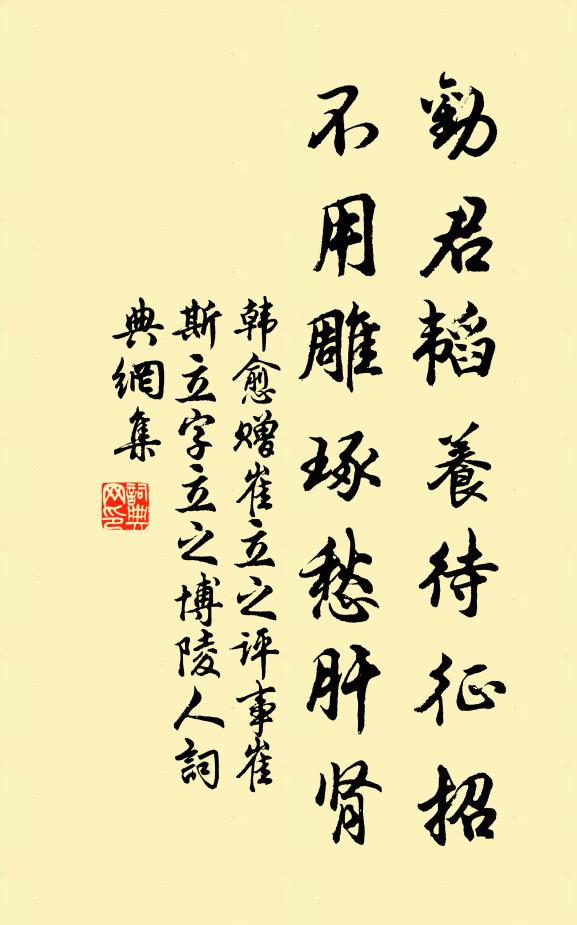 勸君韬養待征招
不用雕琢愁肝肾
韩愈赠崔立之评事崔
斯立字立之博陵人詞
典網集
詞典网印